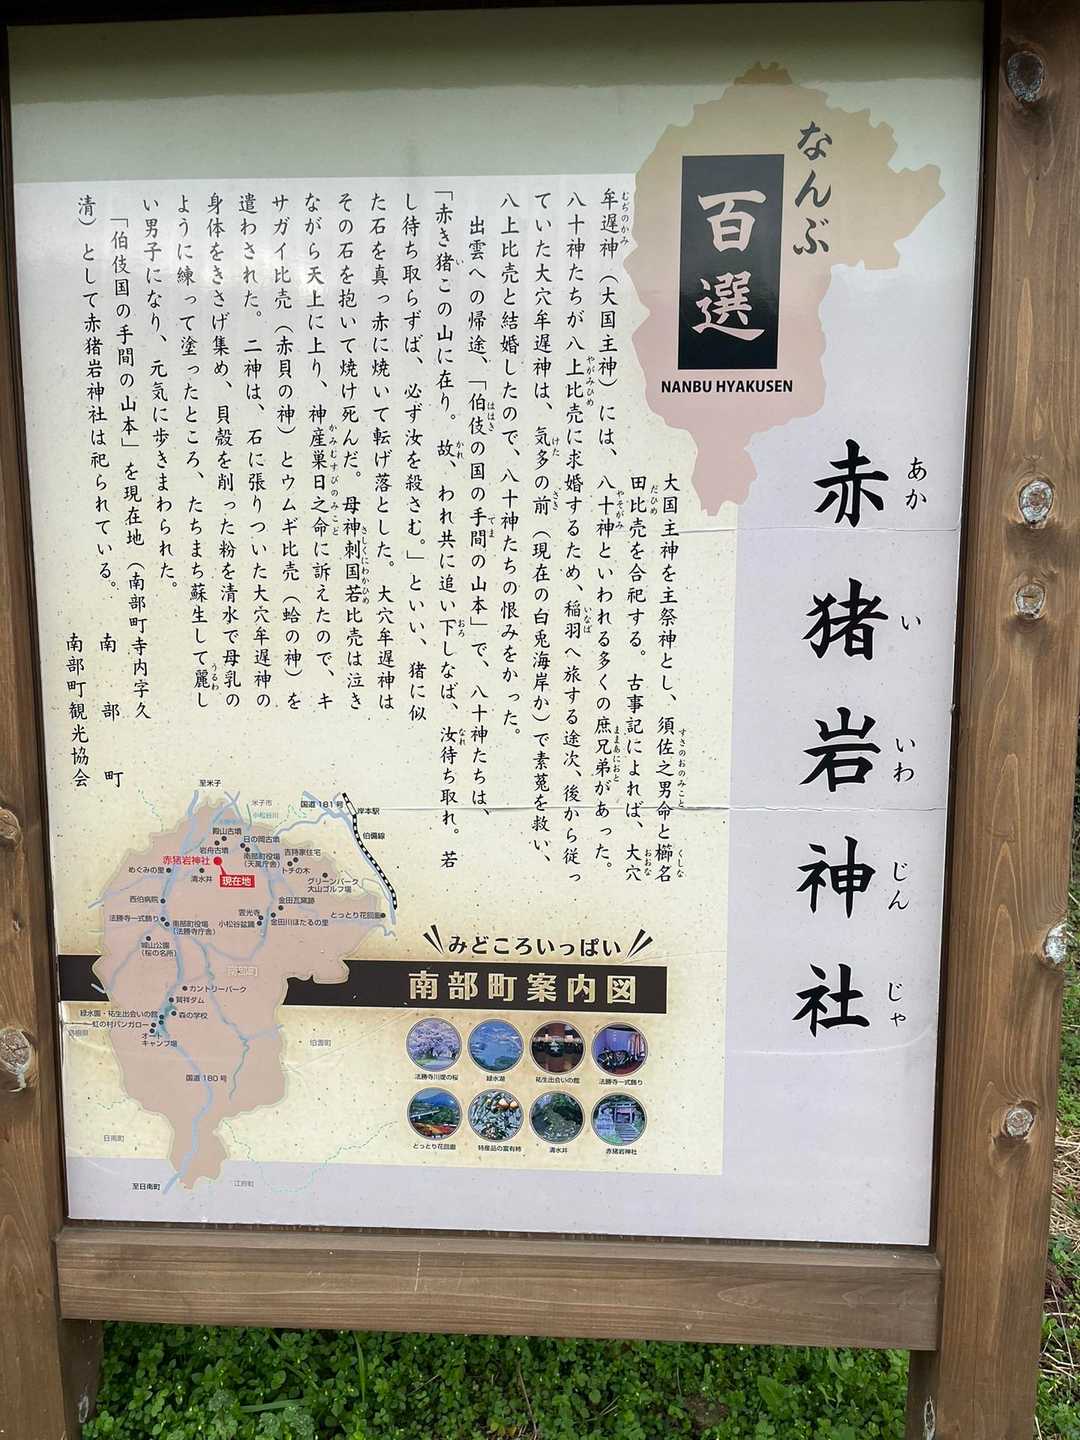 なんぶ
百選
NANBU HYAKUSEN
赤猪岩神社
あかいいわじんじゃ
大国主神を主祭神とし、須佐之男命と櫛名
田比売を合祀する。古事記によれば、大穴
牟遅神（大国主神）には、八十神といわれる多くの庶兄弟があった。
八十神たちが八上比売に求婚するため、稲羽へ旅する途次、後から従っ
ていた大穴牟遅神は、気多の前（現在の白兎海岸か）で素菟を救い、
八上比売と結婚したので、八十神たちの恨みをかった。
出雲への帰途、「伯伎の国の手間の山本」で、八十神たちは、
「赤き猪この山に在り。故、われ共に追い下しなば、汝待ち取れ。若
し待ち取らずば、必ず汝を殺さむ。」といい、猪に似
た石を真っ赤に焼いて転げ落とした。大穴牟遅神は
その石を抱いて焼け死んだ。母神刺国若比売は泣き
ながら天上に上り、神産巣日之命に訴えたので、キ
サガイ比売（赤貝の神）とウムギ比売（蛤の神）を
遣わされた。二神は、石に張りついた大穴牟遅神の
身体をきさげ集め、貝殻を削った粉を清水で母乳の
ように練って塗ったところ、たちまち蘇生して麗し
い男子になり、元気に歩きまわられた。
「伯伎国の手間の山本」を現在地（南部町寺内字久
清）として赤猪岩神社は祀られている。
南部町
南部町観光協会
至米子
米子市
小松谷川
国道181号
岸本駅
伯備線
殿山古墳
日の岡古墳
岩舟古墳
南部町役場
（天萬庁舎）
吉持家住宅
トチの木
赤猪岩神社
現在地
めぐみの里
清水井
グリーンパーク
大山ゴルフ場
西伯病院
金田瓦窯跡
法勝寺一式飾り
南部町役場
（法勝寺庁舎）
雲光寺
小松谷盆踊
金田川ほたるの里
とっとり花回廊
城山公園
（桜の名所）
南部町
カントリーパーク
賀祥ダム
緑水園・祐生出会いの館
森の学校
虹の村バンガロー
オート
キャンプ場
島根県
伯耆町
国道180号
日南町
至日南町
江府町
みどころいっぱい
南部町案内図
法勝寺川堤の桜
緑水湖
祐生出会いの館
法勝寺一式飾り
とっとり花回廊
特産品の富有柿
清水井
赤猪岩神社